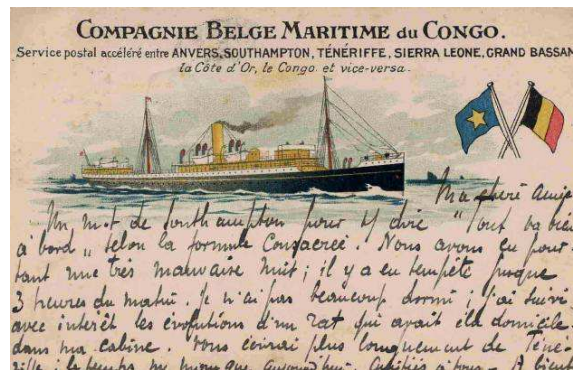 COMPAGNIE BELGE MARITIME DU CONGO.
Service postal accéléré entre ANVERS, SOUTHAMPTON, TÉNÉRIFFE, SIERRA LEONE, GRAND BASSAM
la Côte d'Or, le Congo et vice-versa.
Ma chère Amie
Un mot de Southampton pour dire "Tout va bien
à bord" selon la formule Consacrée. Nous avons eu pour-
tant une très mauvaise nuit; il y a eu tempête jusque
3 heures du matin. Je n'ai pas beaucoup dormi; j'ai suivi
avec intérêt les évolutions d'un rat qui avait élu domicile
dans ma cabine. Vous écrirai plus longuement de Téné-
riffe; le temps me manque aujourd'hui. Amitiés à tous - A bient